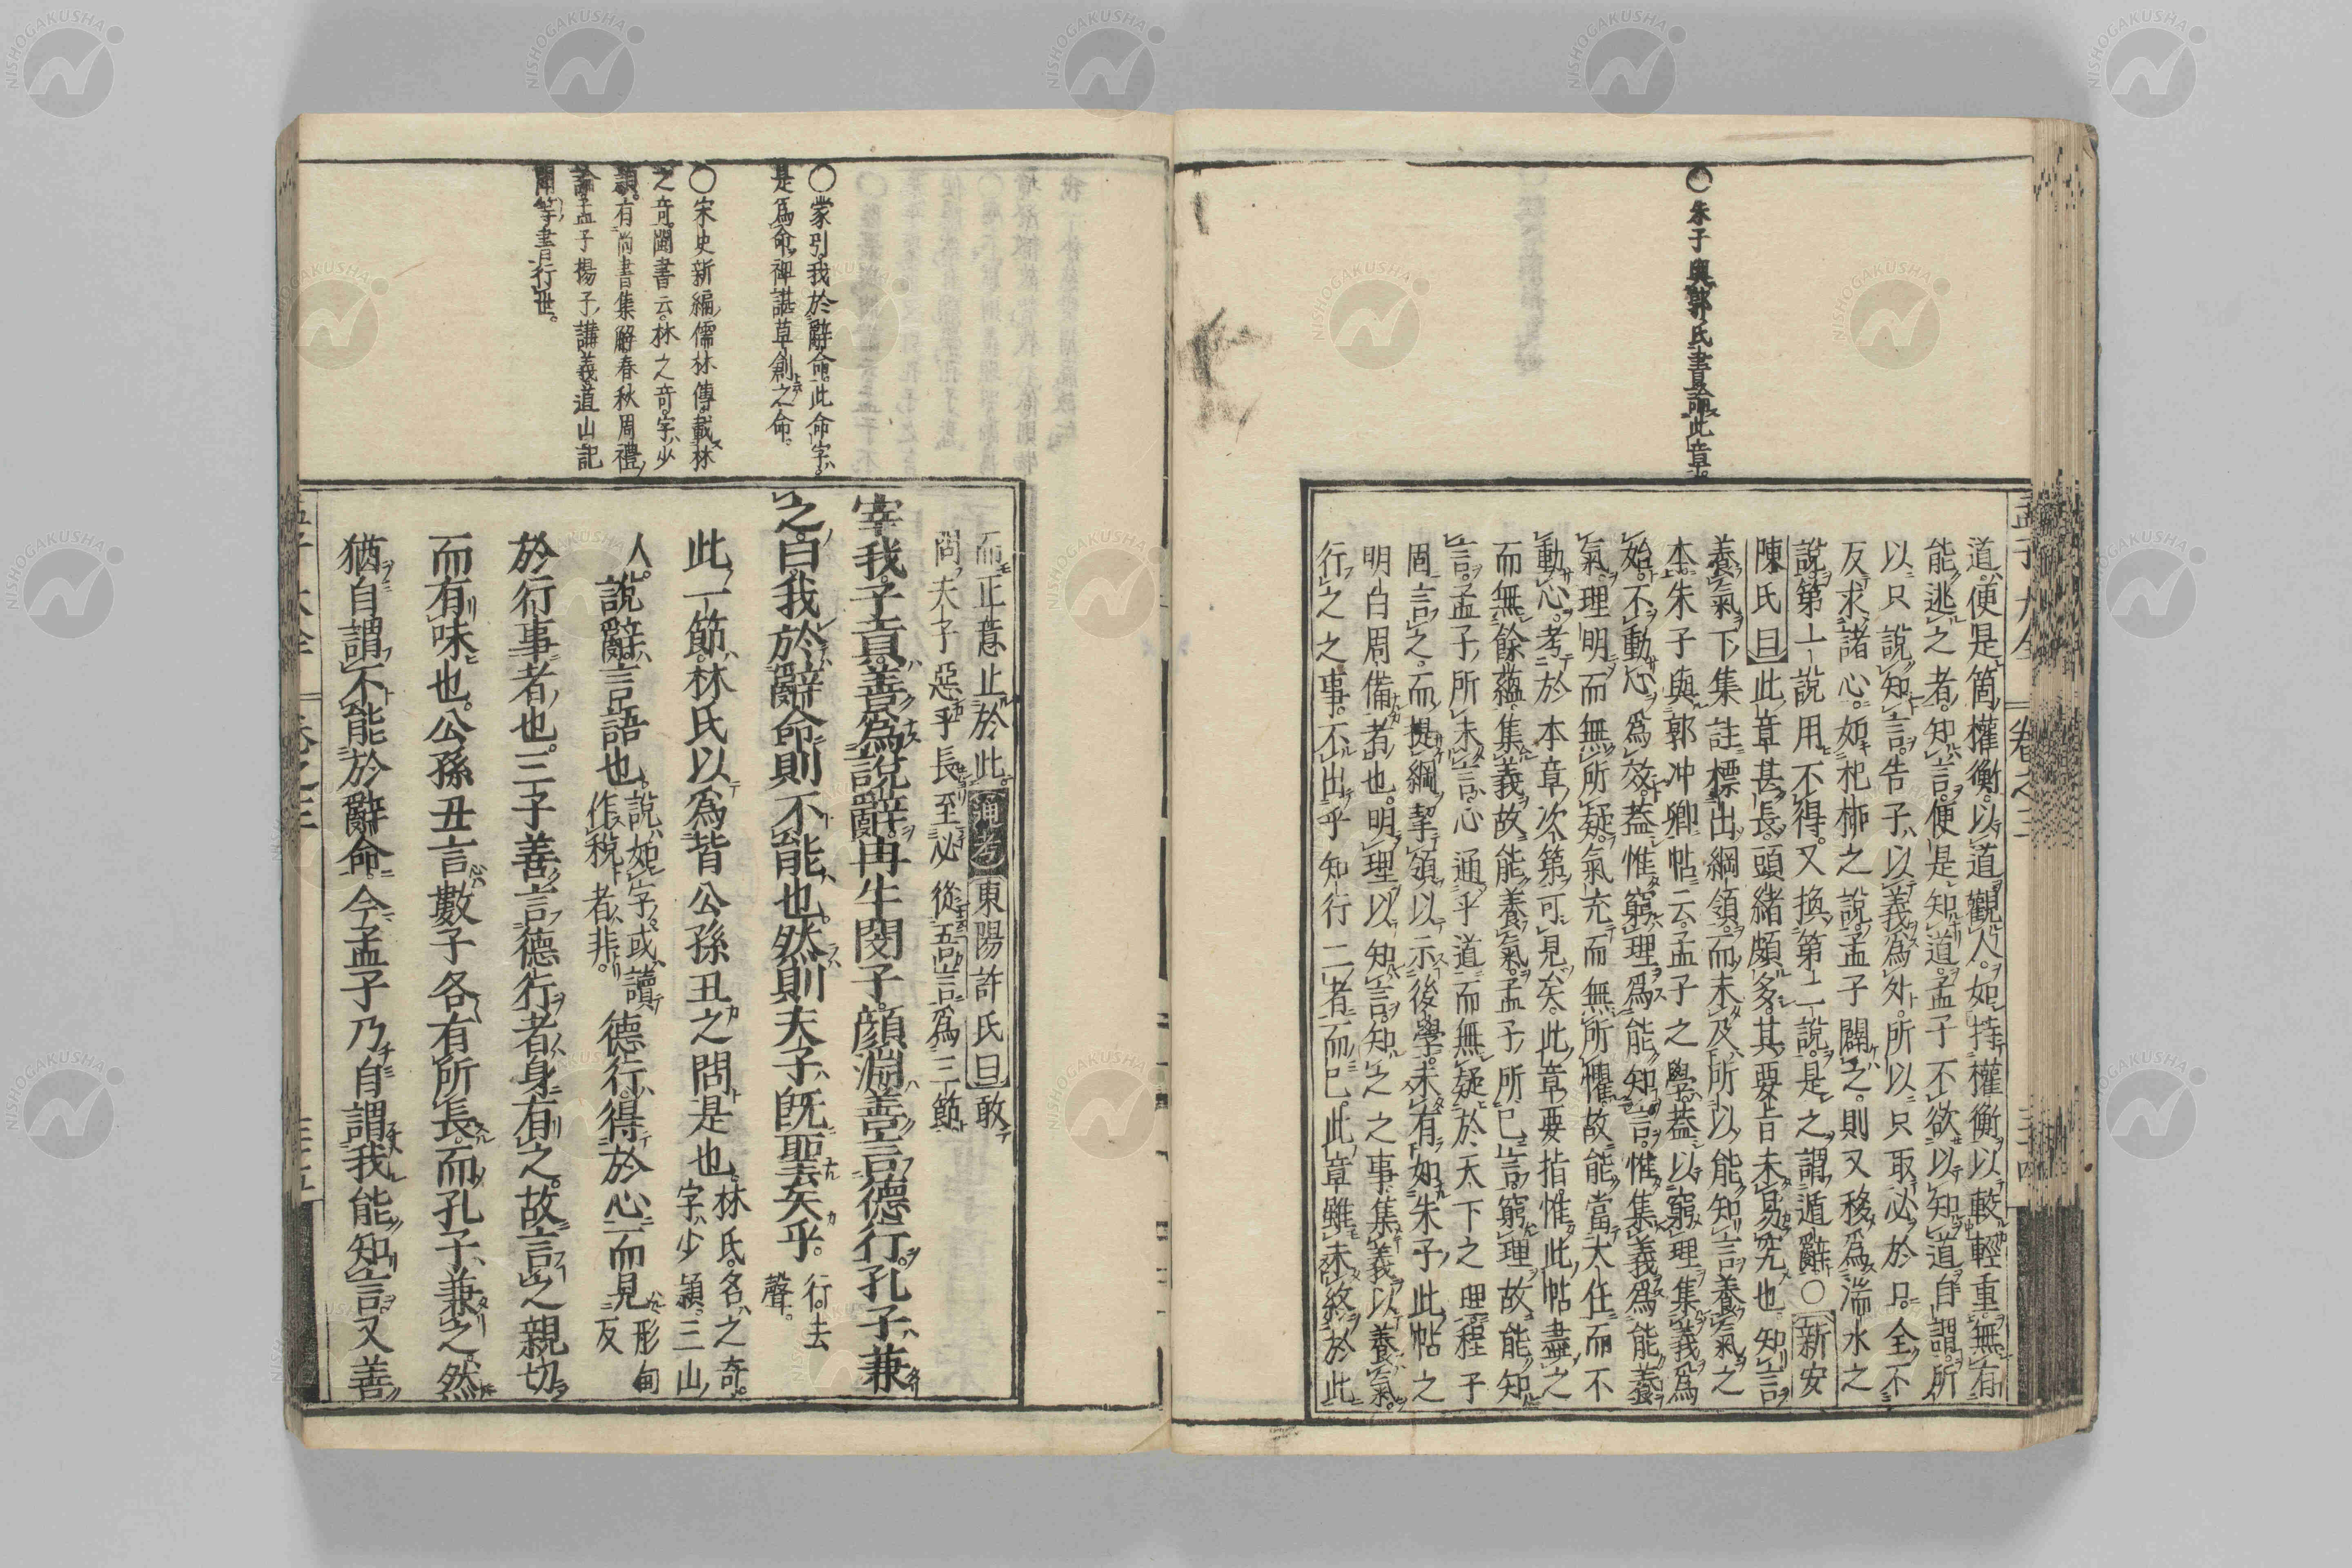 ○朱子與郭氏書論此章。
孟子大全 卷之三 三十四
道。便是箇權衡。以道觀人。如持權衡以較輕重。無有
能逃之者。知言。便是知道。孟子不欲以知道自謂。所
以只說知言。告子以義為外。所以只取必於口。全不
反求諸心。如杞柳之說。孟子闢之。則又移為湍水之
說。第一說用不得。又換第二說。是之謂遁辭○新安
陳氏曰此章甚長。頭緒頗多。其要旨未易究也。知言
養氣下。集註標出綱領。而未及所以能知言養氣之
本。朱子與郭冲卿帖云。孟子之學。蓋以窮理集義為
始。不動心為效。蓋惟窮理為能知言。惟集義為能養
氣。理明而無所疑。氣充而無所懼。故能當大任而不
動心。考於本章次第可見矣。此章要指。惟此帖盡之
而無餘蘊。集義故能養氣。孟子所已言。窮理故能知
言。孟子所未言。心通乎道而無疑於天下之理。程子
固言之。而提綱挈領以示後學。未有如朱子此帖之
明白周備者也。明理以知言。知之之事。集義以養氣。
行之之事。不出乎知行二者而已。此章雖未終於此
而正意止於此。通考東陽許氏曰敢
問夫子惡乎長至必從吾言為三節
宰我。子貢。善為說辭。冉牛閔子。顏淵。善言德行。孔子兼
之。曰。我於辭命則不能也。然則夫子既聖矣乎。行。去聲。
此一節。林氏以為皆公孫丑之問是也。林氏。名之奇。字少穎。三山
人。說辭。言語也。說。如字。或讀作稅者非。德行。得於心而見形甸反
於行事者也。三子善言德行者。身有之。故言之親切
而有味也。公孫丑言數子各有所長。而孔子兼之。然
猶自謂不能於辭命。今孟子乃自謂我能知言。又善
○蒙引。我於辭命。此命字。
是為命。裨諶草創之命。
○宋史新編儒林傳。載林
之奇。閩書云。林之奇。字少
穎。有尚書集解春秋周禮
論孟子揚子講義道山記
聞等書行世。